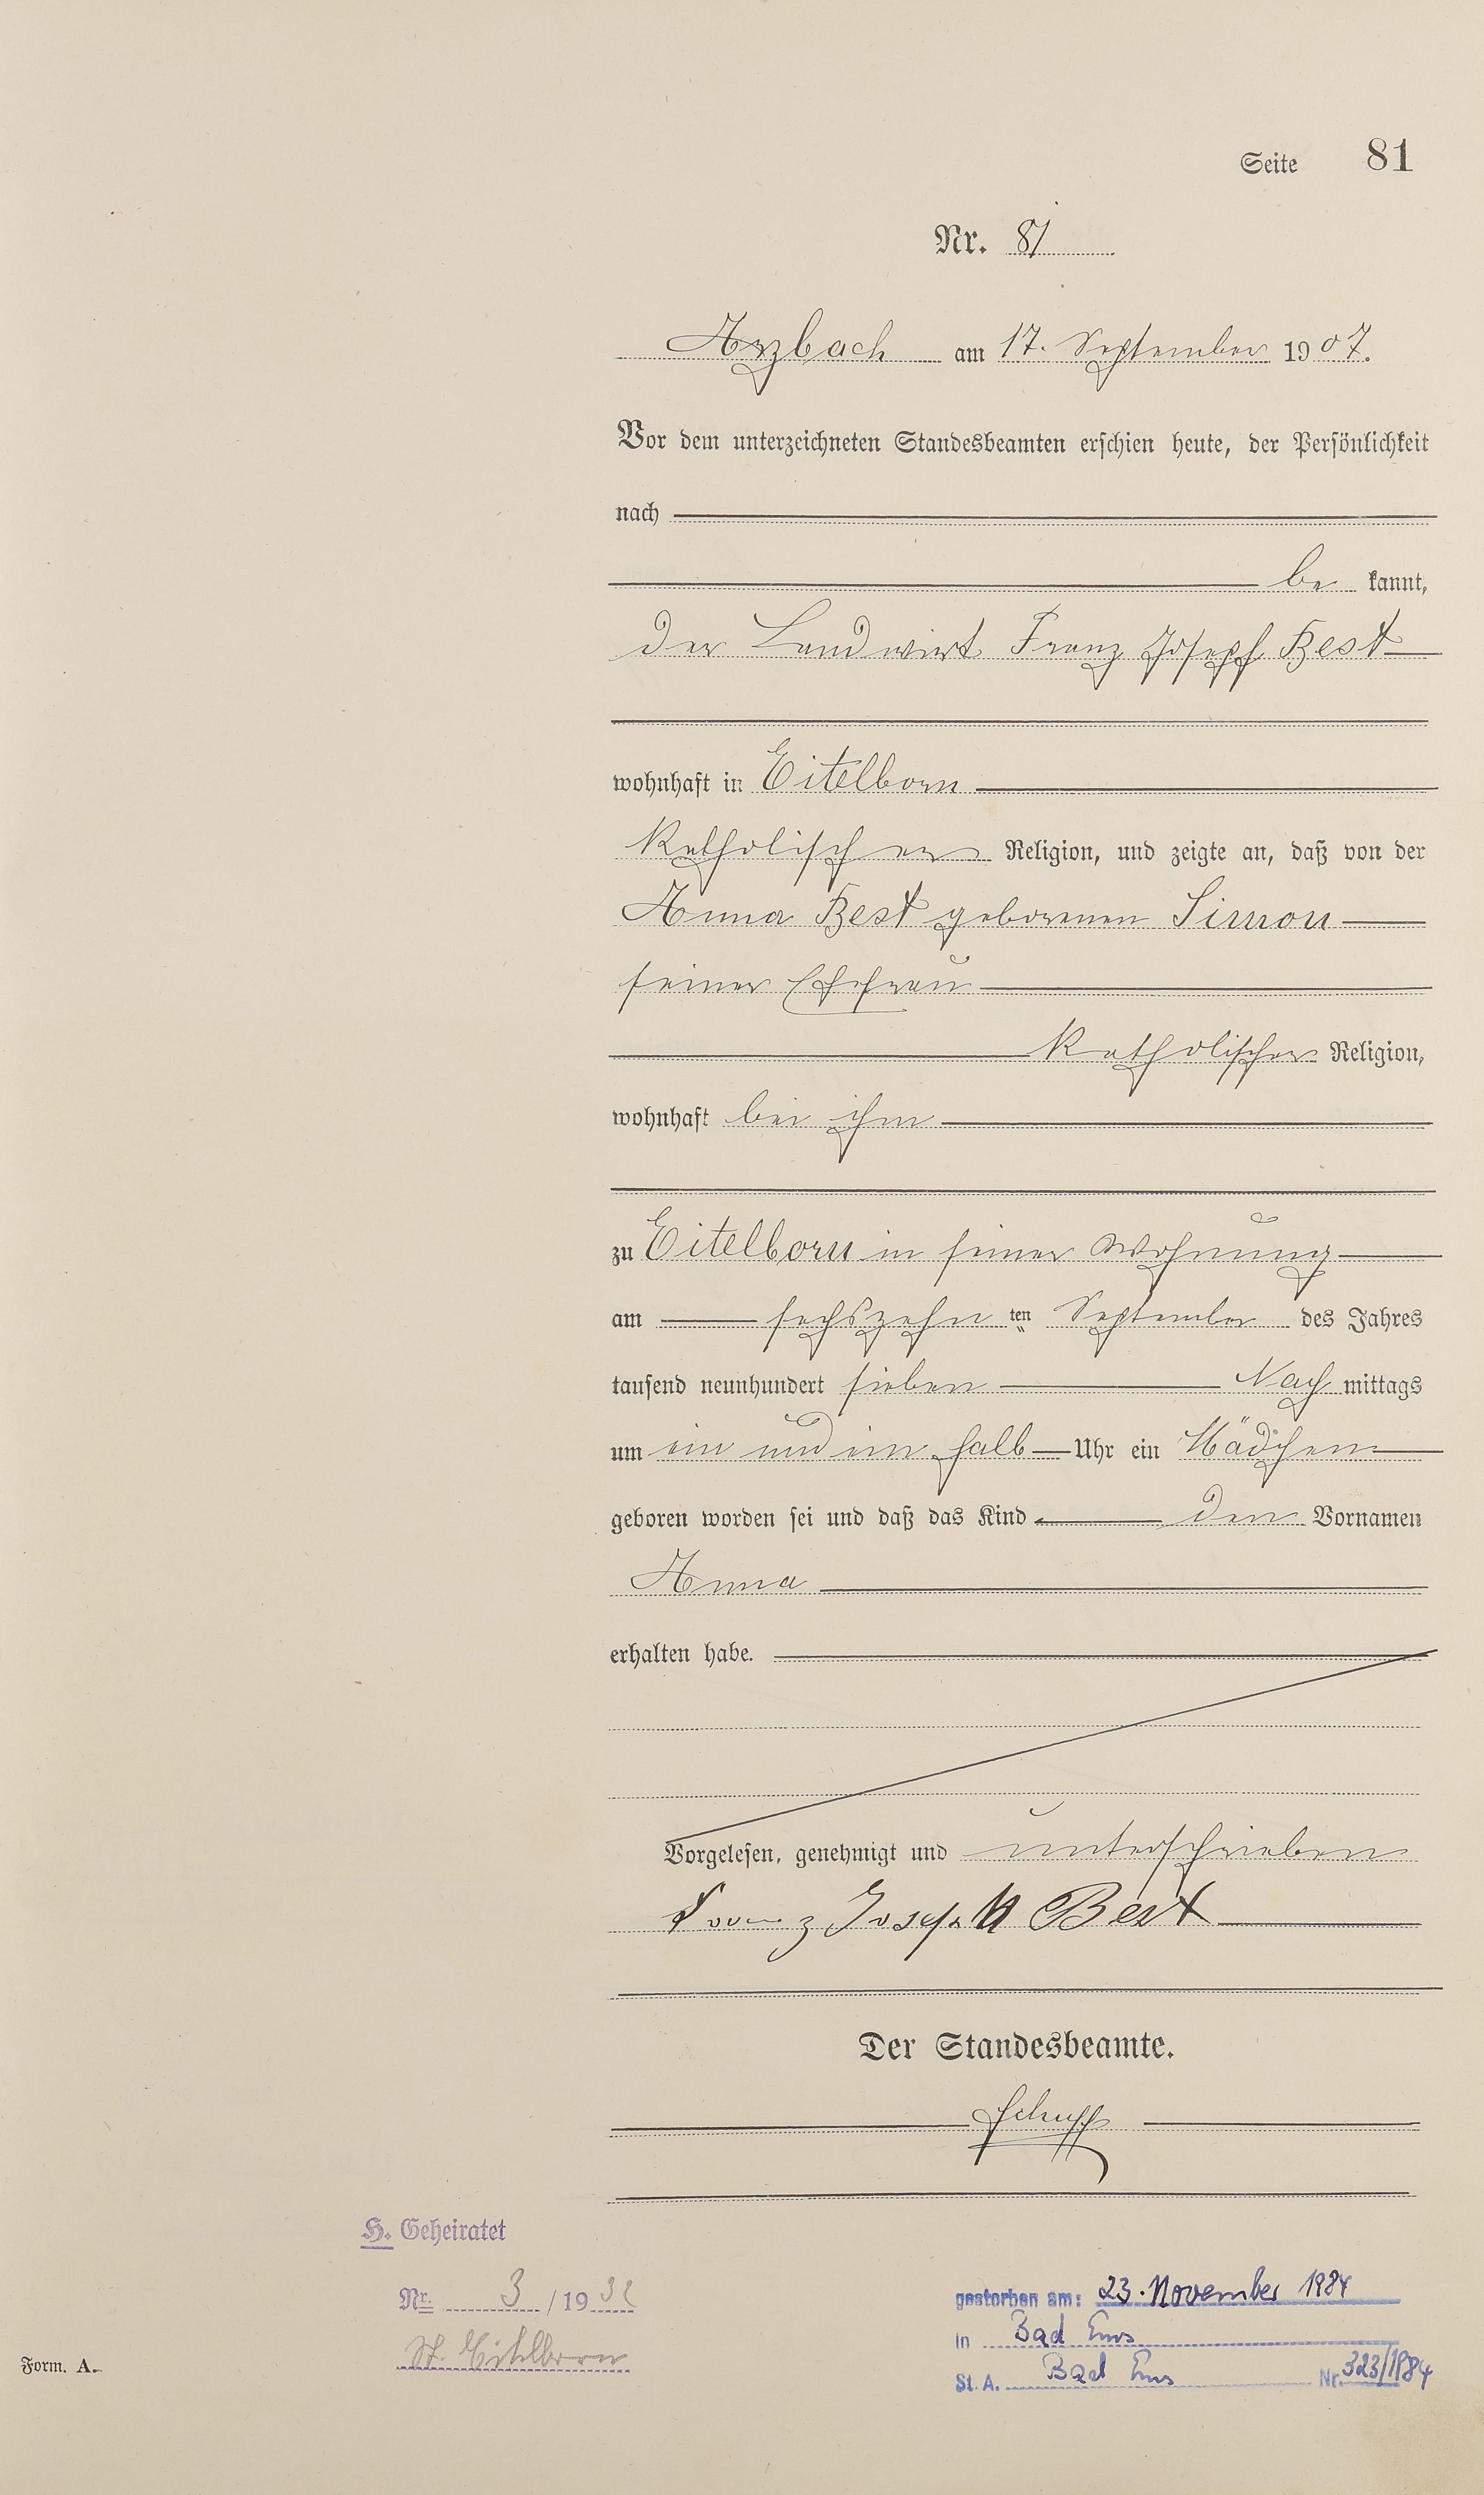 Seite 81
Nr. 81
Arzbach am 17. September 1907.
Vor dem unterzeichneten Standesbeamten erschien heute, der Persönlichkeit
nach
be kannt,
der Landwirt Franz Joseph Best
wohnhaft in Eitelborn
katholischer Religion, und zeigte an, daß von der
Anna Best geborenen Simon
seiner Ehefrau
katholischer Religion,
wohnhaft bei ihm
zu Eitelborn in seiner Wohnung
am sechszehn ten September des Jahres
tausend neunhundert sieben Nach mittags
um ein und ein halb Uhr ein Mädchen
geboren worden sei und daß das Kind den Vornamen
Anna
erhalten habe.
Vorgelesen, genehmigt und unterschrieben
Franz Joseph Best
Der Standesbeamte.
Schupp
H. Geheiratet
Nr. 3 / 1932
St. Eitelborn
gestorben am: 23. November 1984
in Bad Ems
St. A. Bad Ems Nr. 323/1984
Form. A.